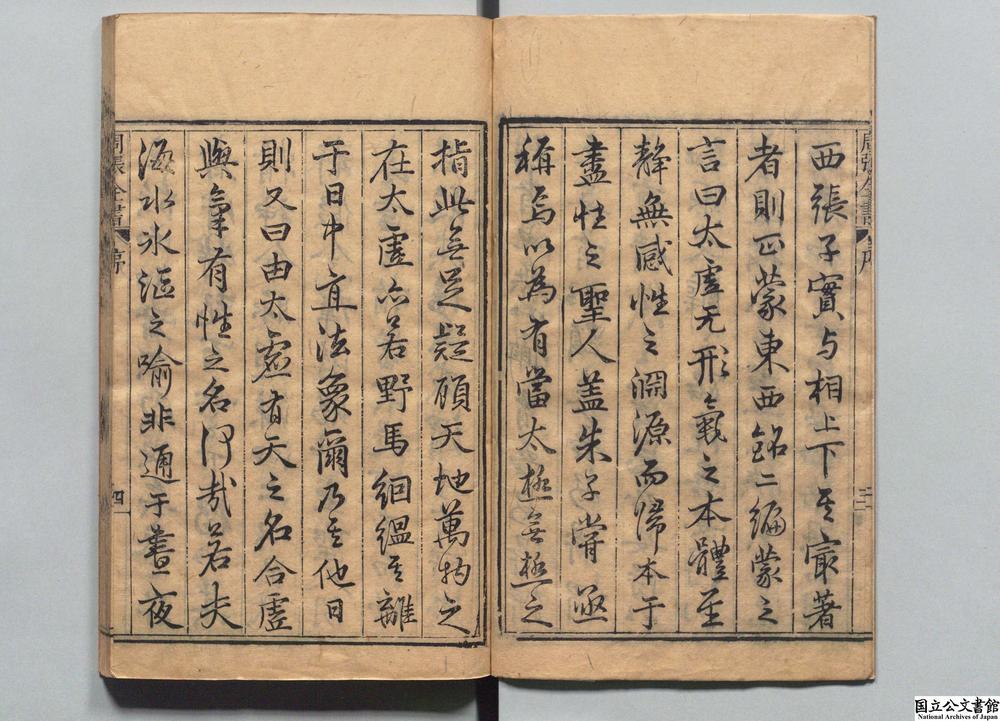 西張子實与相上下其最著
者則正蒙東西銘二編蒙之
言曰太虛无形氣之本體至
靜無感性之淵源而歸本于
盡性之聖人蓋朱子嘗亟
稱焉以為有當太極無極之
指此無足疑顧天地萬物之
在太虛亦若野馬絪縕其離
于日中直法象爾乃其他日
則又曰由太虛有天之名合虛
與氣有性之名何哉若夫
海水冰漚之喻非通于晝夜
周張全書 序 四
国立公文書館
National Archives of Japan